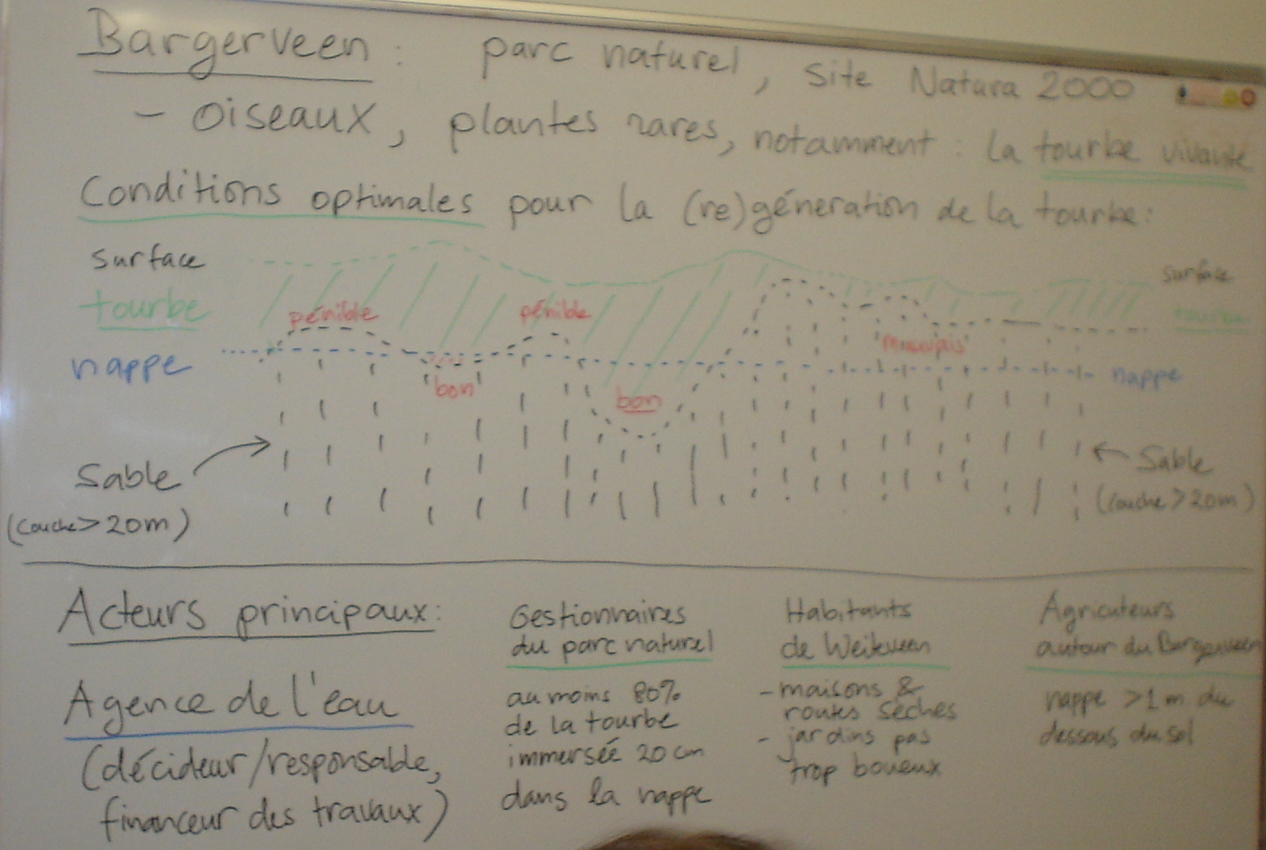 Bargerveen : parc naturel, site Natura 2000
- oiseaux, plantes rares, notamment : la tourbe vivante
Conditions optimales pour la (re)génération de la tourbe:
surface
surface
tourbe
pénible
pénible
tourbe
nappe
'bon'
bon
'mauvais'
nappe
Sable
(couche > 20m)
Sable
(couche > 20m)
Acteurs principaux:
Agence de l'eau
(décideur/responsable,
financeur des travaux)
Gestionnaires
du parc naturel
au moins 80%
de la tourbe
immersée 20 cm
dans la nappe
Habitants
de Weiteveen
- maisons &
routes sèches
- jardins pas
trop boueux
Agricuteurs
autour du Bargerveen
nappe > 1 m du
dessous du sol